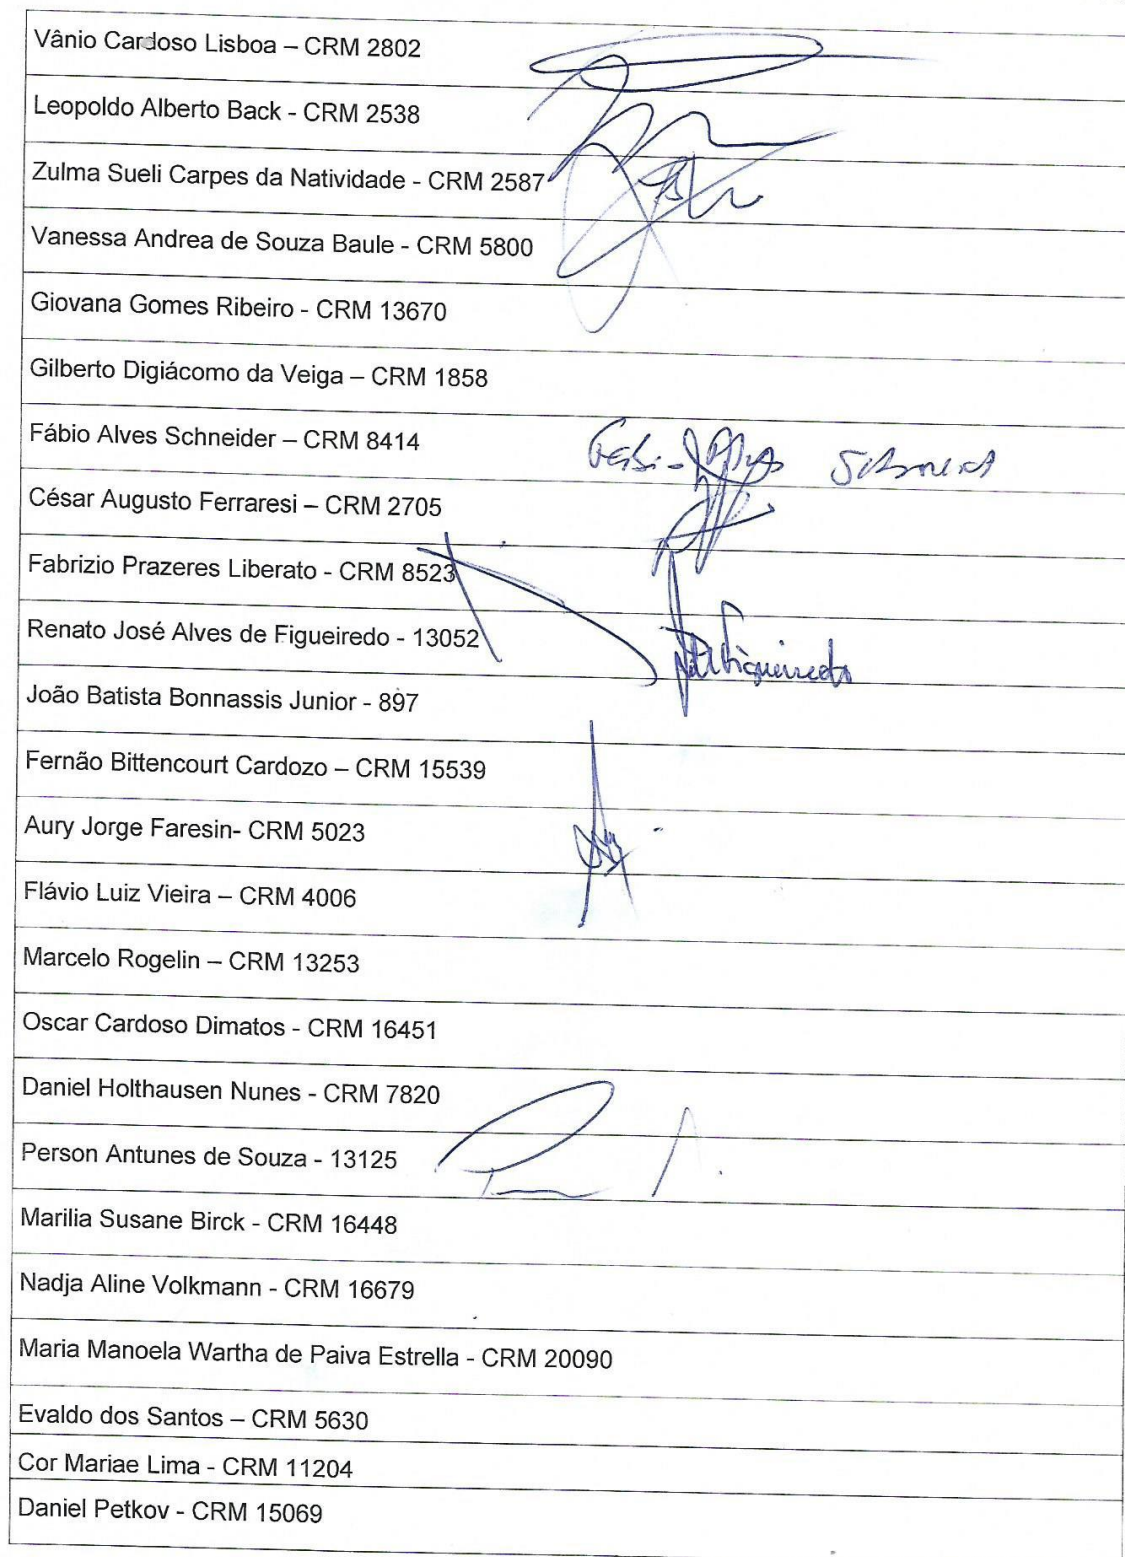 Vânio Cardoso Lisboa – CRM 2802
Leopoldo Alberto Back - CRM 2538
Zulma Sueli Carpes da Natividade - CRM 2587
Vanessa Andrea de Souza Baule - CRM 5800
Giovana Gomes Ribeiro - CRM 13670
Gilberto Digiácomo da Veiga – CRM 1858
Fábio Alves Schneider – CRM 8414
César Augusto Ferraresi – CRM 2705
Fabrizio Prazeres Liberato - CRM 8523
Renato José Alves de Figueiredo - 13052
Figueiredo
João Batista Bonnassis Junior - 897
Fernão Bittencourt Cardozo – CRM 15539
Aury Jorge Faresin- CRM 5023
Flávio Luiz Vieira – CRM 4006
Marcelo Rogelin – CRM 13253
Oscar Cardoso Dimatos - CRM 16451
Daniel Holthausen Nunes - CRM 7820
Person Antunes de Souza - 13125
Marilia Susane Birck - CRM 16448
Nadja Aline Volkmann - CRM 16679
Maria Manoela Wartha de Paiva Estrella - CRM 20090
Evaldo dos Santos – CRM 5630
Cor Mariae Lima - CRM 11204
Daniel Petkov - CRM 15069